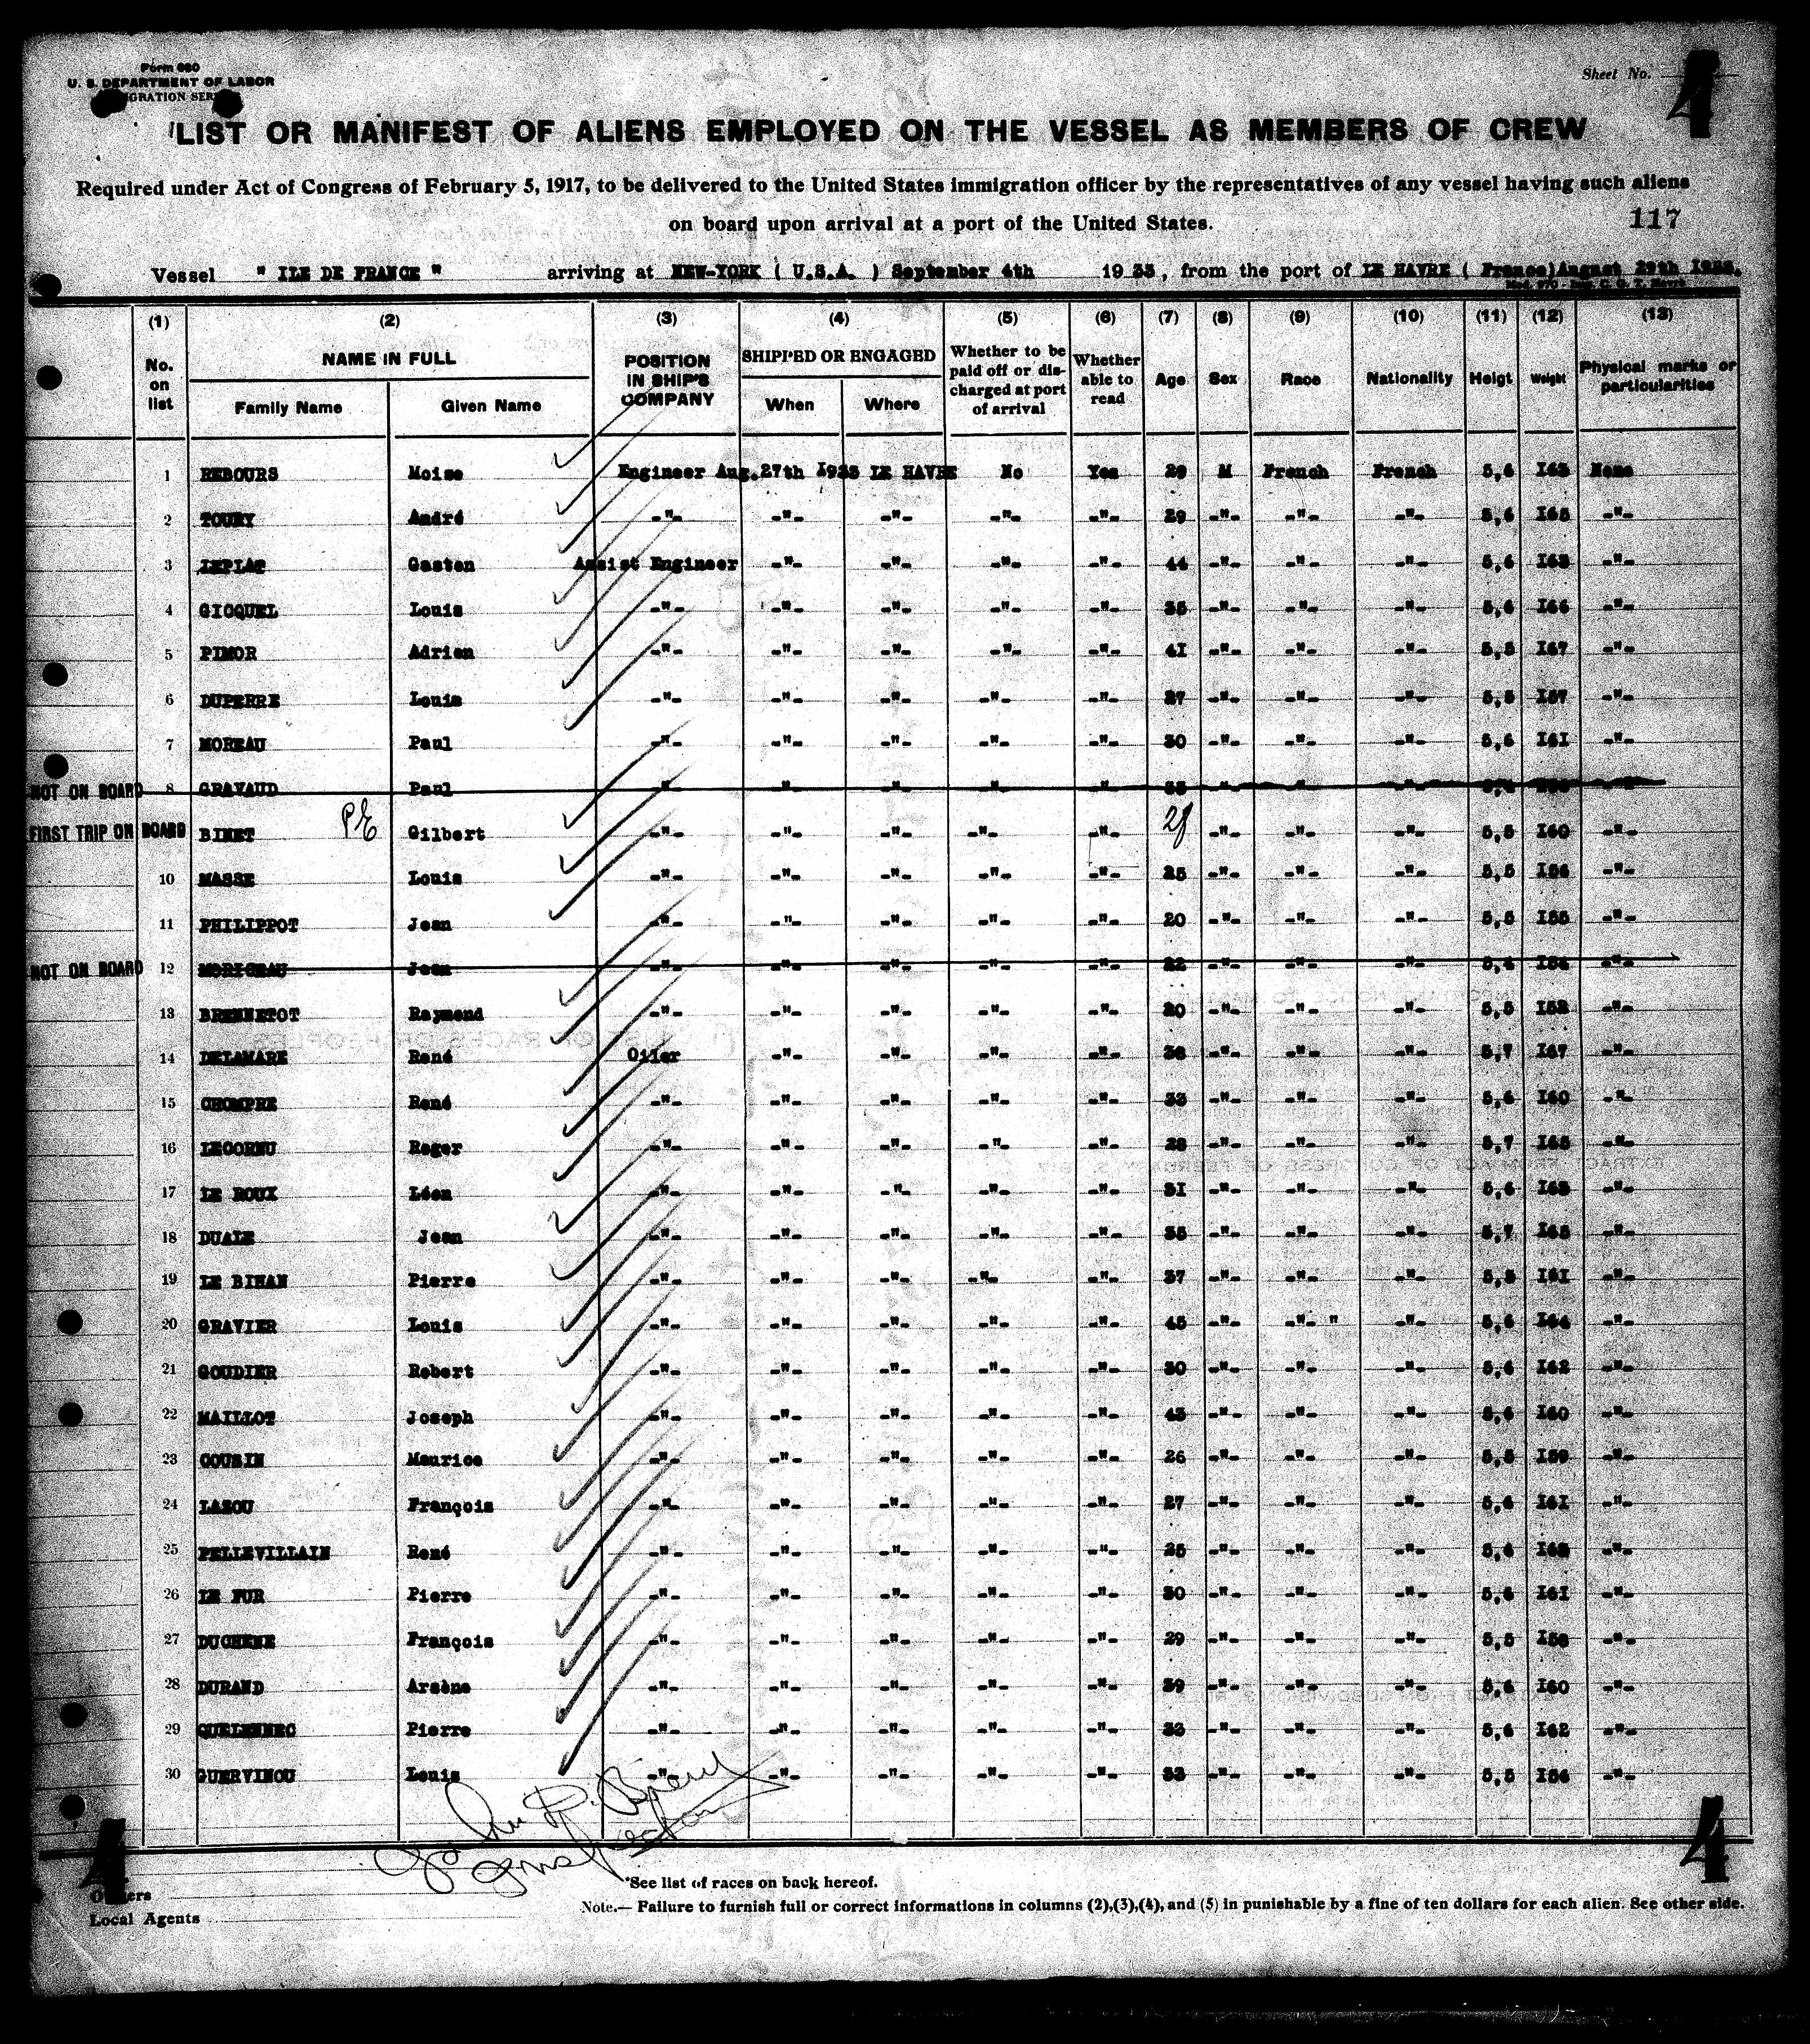 Form 680
U. S. DEPARTMENT OF LABOR
IMMIGRATION SERVICE
Sheet No. 4
LIST OR MANIFEST OF ALIENS EMPLOYED ON THE VESSEL AS MEMBERS OF CREW
Required under Act of Congress of February 5, 1917, to be delivered to the United States immigration officer by the representatives of any vessel having such aliens
on board upon arrival at a port of the United States.
117
Vessel " ILE DE FRANCE " arriving at NEW-YORK ( U.S.A. ) September 4th 19 35, from the port of LE HAVRE ( France) August 29th
(1) (2) (3) (4) (5) (6) (7) (8) (9) (10) (11) (12) (13)
No. on list NAME IN FULL Family Name Given Name POSITION IN SHIP'S COMPANY SHIPPED OR ENGAGED When Where Whether to be paid off or discharged at port of arrival Whether able to read Age Sex Race Nationality Heigt Weight Physical marks or particularities
1 REBOURS Moise Engineer Aug. 27th 1935 LE HAVRE No Yes 29 M French French 5,6 I63 None
2 TOURY André -"- -"- -"- -"- -"- 29 -"- -"- -"- 5,6 I65 -"-
3 LEPLAT Gaston Assist Engineer -"- -"- -"- -"- 44 -"- -"- -"- 5,6 I63 -"-
4 GICQUEL Louis -"- -"- -"- -"- -"- 35 -"- -"- -"- 5,6 I66 -"-
5 PIMOR Adrien -"- -"- -"- -"- -"- 4I -"- -"- -"- 5,5 I67 -"-
6 DUPERRE Louis -"- -"- -"- -"- -"- 27 -"- -"- -"- 5,5 I57 -"-
7 MOREAU Paul -"- -"- -"- -"- -"- 30 -"- -"- -"- 5,6 I6I -"-
NOT ON BOARD 8 GRAVAUD Paul -"- -"- -"- -"- -"- 35 -"- -"- -"- -"-
FIRST TRIP ON BOARD BINET PE Gilbert -"- -"- -"- -"- -"- 28 -"- -"- -"- 5,5 I60 -"-
10 MASSE Louis -"- -"- -"- -"- -"- 25 -"- -"- -"- 5,5 I56 -"-
11 PHILIPPOT Jean -"- -"- -"- -"- -"- 20 -"- -"- -"- 5,5 I55 -"-
NOT ON BOARD 12 MORICEAU Jean -"- -"- -"- -"- -"- 22 -"- -"- -"- 5,4 I54 -"-
13 BRENNETOT Raymond -"- -"- -"- -"- -"- 20 -"- -"- -"- 5,5 I52 -"-
14 DELAMARE René Oiler -"- -"- -"- -"- 38 -"- -"- -"- 5,7 I67 -"-
15 CHOMPRE René -"- -"- -"- -"- -"- 33 -"- -"- -"- 5,6 I60 -"-
16 LECORNU Roger -"- -"- -"- -"- -"- 28 -"- -"- -"- 5,7 I65 -"-
17 LE ROUX Léon -"- -"- -"- -"- -"- 3I -"- -"- -"- 5,6 I63 -"-
18 DUALE Jean -"- -"- -"- -"- -"- 35 -"- -"- -"- 5,7 I65 -"-
19 LE BIHAN Pierre -"- -"- -"- -"- -"- 37 -"- -"- -"- 5,5 I6I -"-
20 GRAVIER Louis -"- -"- -"- -"- -"- 45 -"- -"- " -"- 5,6 I64 -"-
21 GOUDIER Robert -"- -"- -"- -"- -"- 30 -"- -"- -"- 5,6 I62 -"-
22 MAILLOT Joseph -"- -"- -"- -"- -"- 43 -"- -"- -"- 5,6 I60 -"-
23 COUSIN Maurice -"- -"- -"- -"- -"- 26 -"- -"- -"- 5,5 I59 -"-
24 LASOU François -"- -"- -"- -"- -"- 27 -"- -"- -"- 5,6 I6I -"-
25 PELLEVILLAIN René -"- -"- -"- -"- -"- 25 -"- -"- -"- 5,6 I63 -"-
26 LE FUR Pierre -"- -"- -"- -"- -"- 30 -"- -"- -"- 5,6 I6I -"-
27 DUCHENE François -"- -"- -"- -"- -"- 29 -"- -"- -"- 5,5 I58 -"-
28 DURAND Arsène -"- -"- -"- -"- -"- 39 -"- -"- -"- 5,6 I60 -"-
29 QUELENNEC Pierre -"- -"- -"- -"- -"- 33 -"- -"- -"- 5,6 I62 -"-
30 GUERVINOU Louis -"- -"- -"- -"- -"- 33 -"- -"- -"- 5,5 I56 -"-
Inspector
4 4
Owners
Local Agents
*See list of races on back hereof.
Note.— Failure to furnish full or correct informations in columns (2),(3),(4), and (5) in punishable by a fine of ten dollars for each alien. See other side.